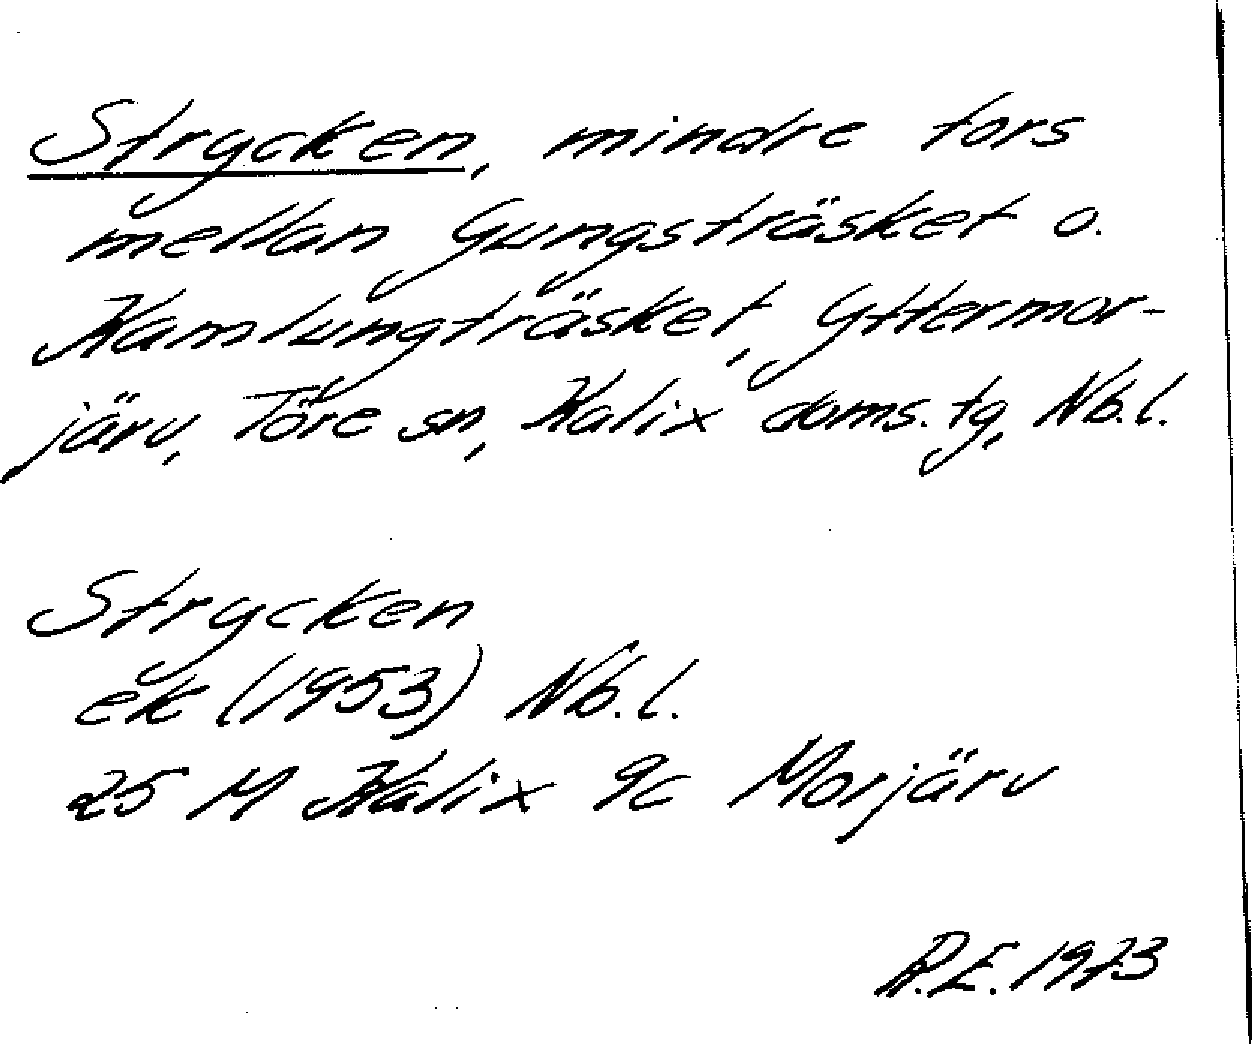 Strycken, mindre fors
mellan Gungsträsket o.
Kamlungträsket, Yttermor-
järv, Töre sn, Kalix doms. tg, Nb.l.
Strycken
ek (1953) Nb.l.
25 M Kalix 9c Morjärv
R.E. 1973